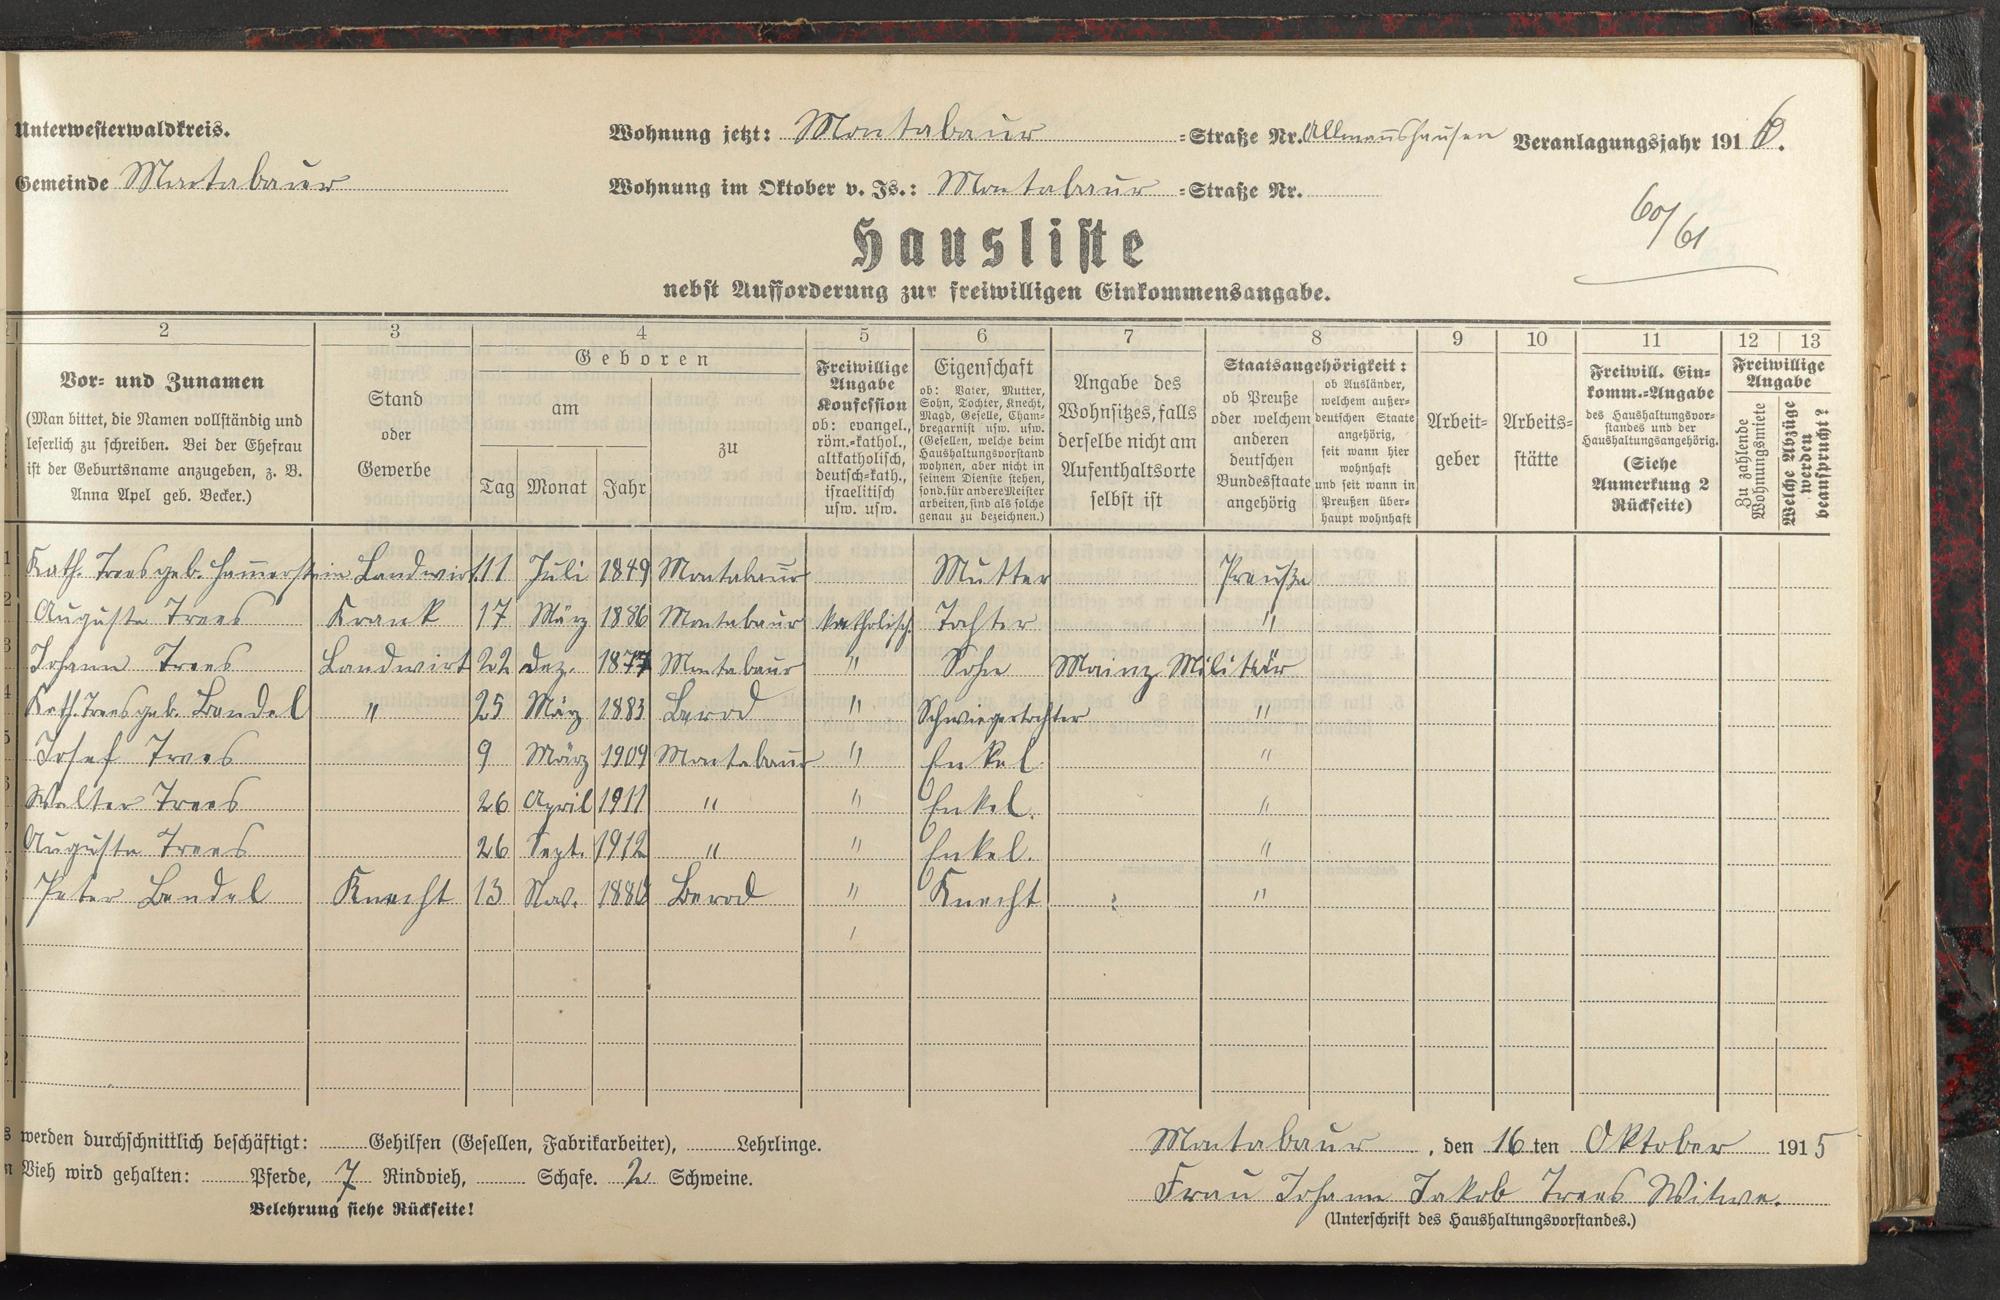 Unterwesterwaldkreis.
Wohnung jetzt: Montabaur =Straße Nr. Allmannshausen Veranlagungsjahr 1916.
Gemeinde Montabaur
Wohnung im Oktober v. Js.: Montabaur =Straße Nr.
60/61
Hausliste
nebst Aufforderung zur freiwilligen Einkommensangabe.
2 3 4 5 6 7 8 9 10 11 12 13
Vor= und Zunamen
(Man bittet, die Namen vollständig und
leserlich zu schreiben. Bei der Ehefrau
ist der Geburtsname anzugeben, z. B.
Anna Apel geb. Becker.)
Stand
oder
Gewerbe
Geboren
am
Tag Monat Jahr
zu
Freiwillige
Angabe
Konfession
ob: evangel.,
röm.=kathol.,
altkatholisch,
deutsch=kath.,
israelitisch
usw. usw.
Eigenschaft
ob: Vater, Mutter,
Sohn, Tochter, Knecht,
Magd, Geselle, Cham=
bregarnist usw. usw.
(Gesellen, welche beim
Haushaltungsvorstand
wohnen, aber nicht in
seinem Dienste stehen,
sond. für andere Meister
arbeiten, sind als solche
genau zu bezeichnen.)
Angabe des
Wohnsitzes, falls
derselbe nicht am
Aufenthaltsorte
selbst ist
Staatsangehörigkeit:
ob Preuße
oder welchem
anderen
deutschen
Bundesstaate
angehörig
ob Ausländer,
welchem außer=
deutschen Staate
angehörig,
seit wann hier
wohnhaft
und seit wann in
Preußen über=
haupt wohnhaft
Arbeit=
geber
Arbeits=
stätte
Freiwill. Ein=
komm.=Angabe
des Haushaltungsvor=
standes und der
Haushaltungsangehörig.
(Siehe
Anmerkung 2
Rückseite)
Freiwillige
Angabe
Zu zahlende
Wohnungsmiete
Welche Abzüge
werden
beansprucht?
1 Kath. Trees geb. Hammerstein Landwirt 11 Juli 1849 Montabaur Mutter Preuße
2 Auguste Trees Krank 17 März 1886 Montabaur katholisch. Tochter "
3 Johann Trees Landwirt 22 Dez. 1877 Montabaur " Sohn Mainz Militär
4 Kath. Trees geb. Bendel " 25 März 1883 Berod " Schwiegertochter "
5 Josef Trees 9 März 1909 Montabaur " Enkel "
6 Walter Trees 26 April 1911 " " Enkel. "
7 Auguste Trees 26 Sept. 1912 " " Enkel. "
Peter Bendel Knecht 13 Nov. 1880 Berod " Knecht "
werden durchschnittlich beschäftigt: Gehilfen (Gesellen, Fabrikarbeiter), Lehrlinge.
Montabaur, den 16ten Oktober 1915
Vieh wird gehalten: Pferde, 7 Rindvieh, Schafe. 2 Schweine.
Frau Johann Jakob Trees Witwe.
Belehrung siehe Rückseite!
(Unterschrift des Haushaltungsvorstandes.)